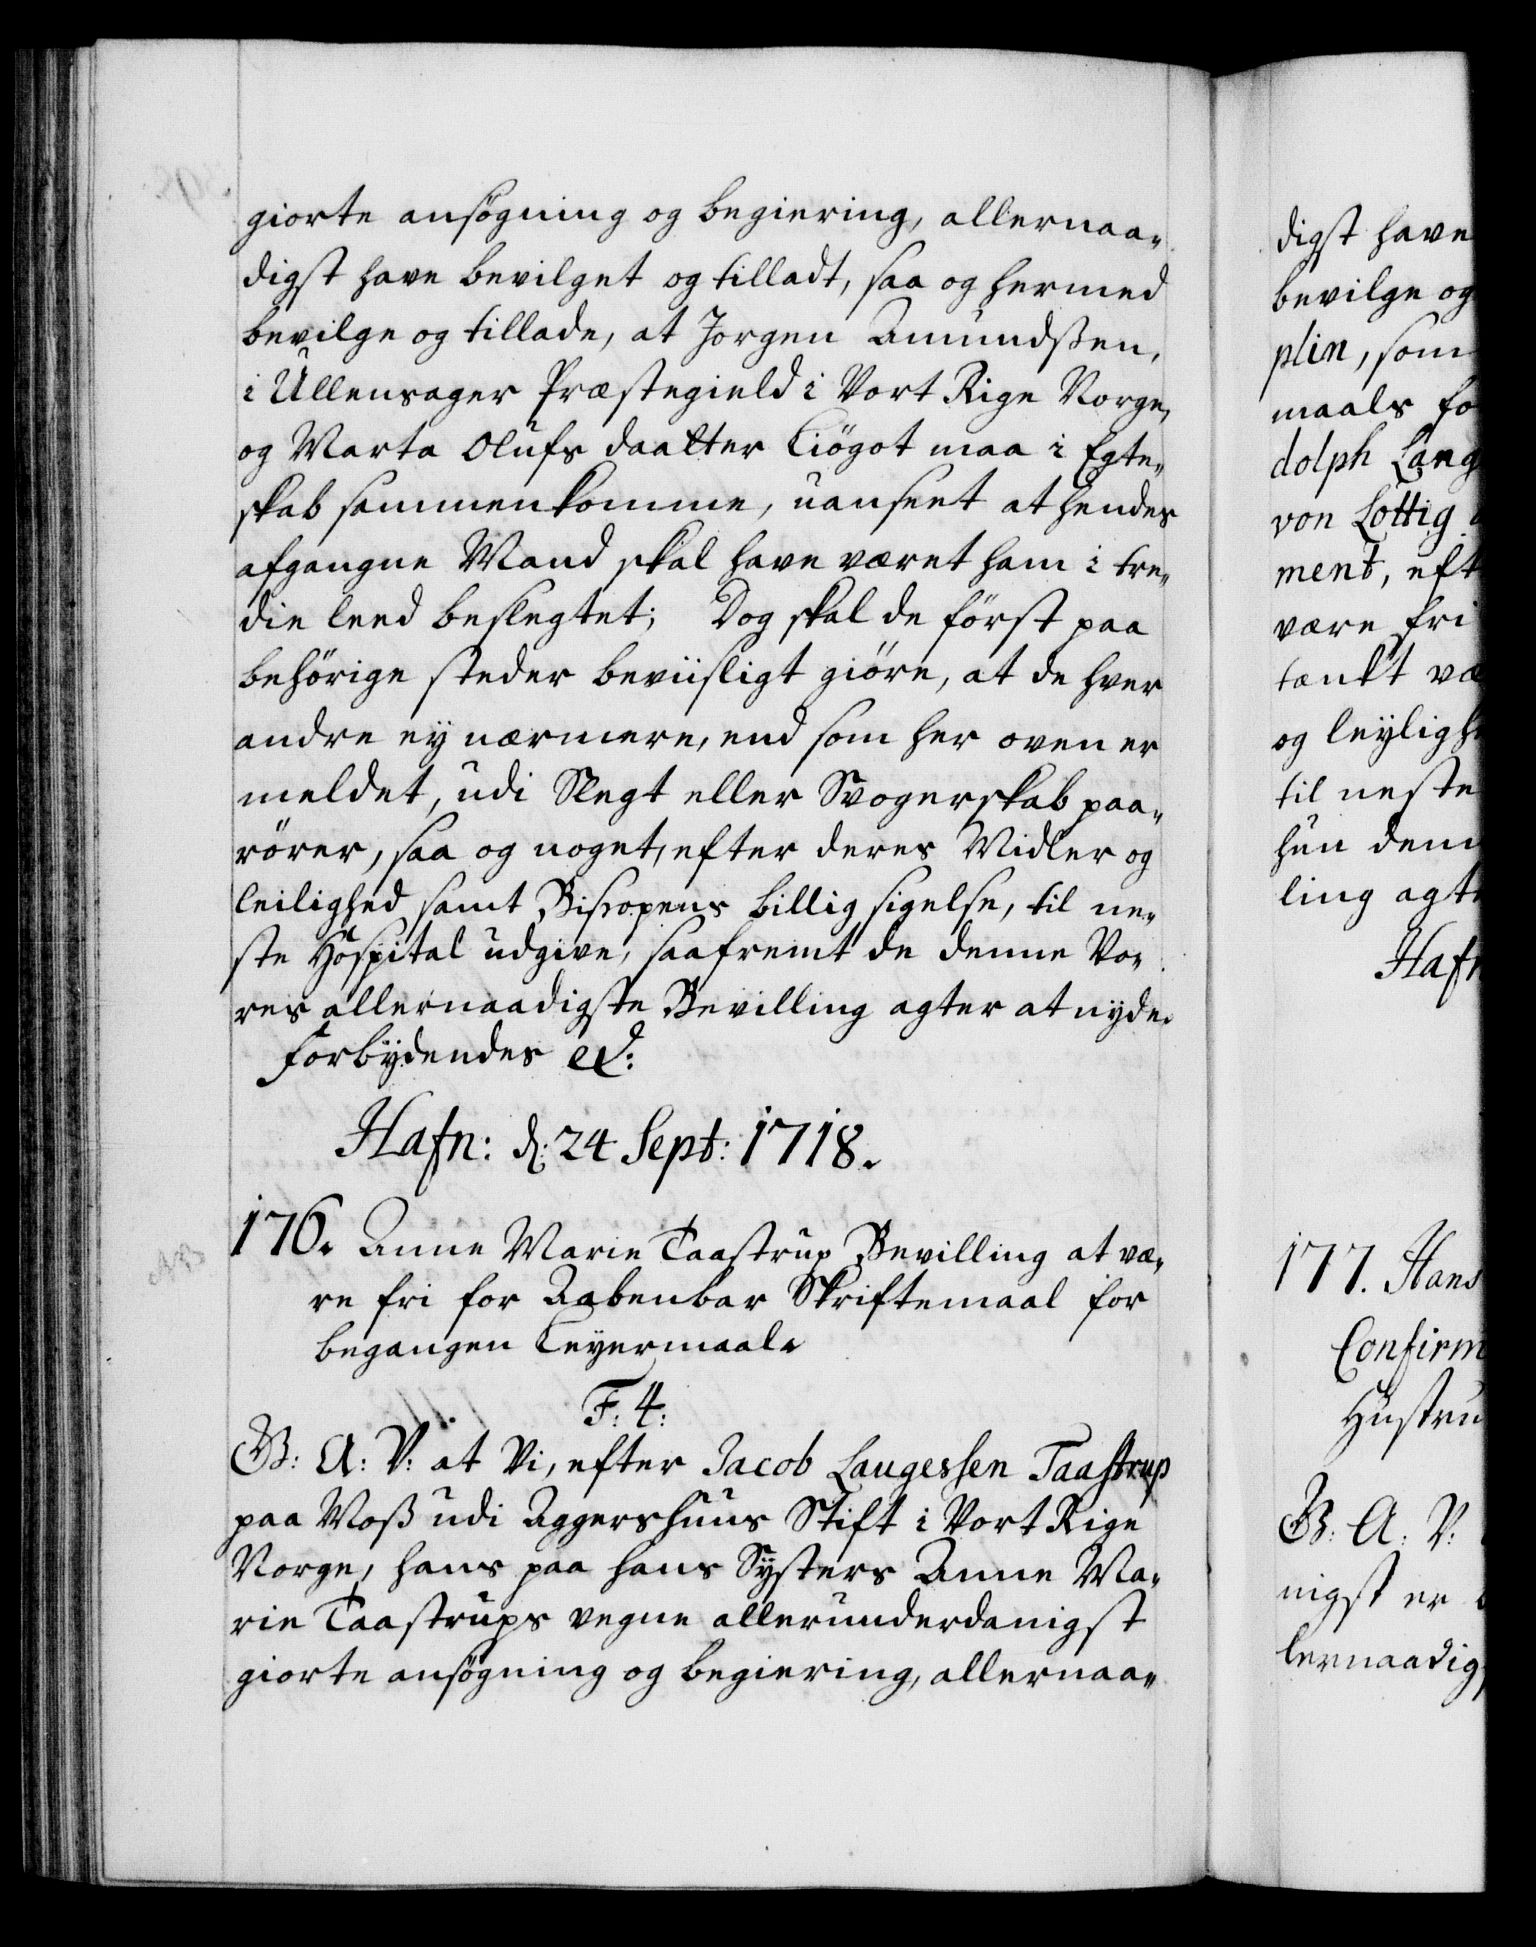 giorte ansøgning og begiering, allernaa-
digst have bevilget og tilladt, saa og hermed
bevilge og tillade, at Jørgen Amundssen,
i Ullensager Præstegield i Vort Rige Norge,
og Marta Olufs daatter Liøgot maa i Egte-
skab sammenkomme, uanseet at hendes
afgangne Mand skal have været ham i tre-
die leed beslegtet; Dog skal de først paa
behørige steder beviisligt giøre, at de hver
andre ey nærmere, end som her oven er
meldet, udi Slegt eller Svogerskab paa-
rører, saa og noget, efter deres Midler og
leilighed samt Biscopens billig sigelse, til ne-
ste Hospital udgive, saafremt de denne Vo-
res allernaadigste Bevilling agter at nyde.
Forbydendes
Hafn: d: 24 Sept: 1718.
176. Anne Marie Taastrup Bevilling at væ-
re fri for Aabenbar Skriftemaal for
begangen Leyermaal.
F: 4:
G: A: V: at Vi, efter Jacob Laugessen Taastrup
paa Moss udi Aggershuus Stift i Vort Rige
Norge, hans paa hans Systers Anne Ma-
rie Taastrups vegne allerunderdanigst
giorte ansøgning og begiering, allernaa-
digst have
bevilge og
plin, som
maals fo
dolph Lang
von Lottig
ment, eft
være fri
tænkt væ
og leyligh
til neste
hun denn
ling agt
Hafn
177. Hans
Confirm
Hustru
G: A: V:
nigst er
lernaadig